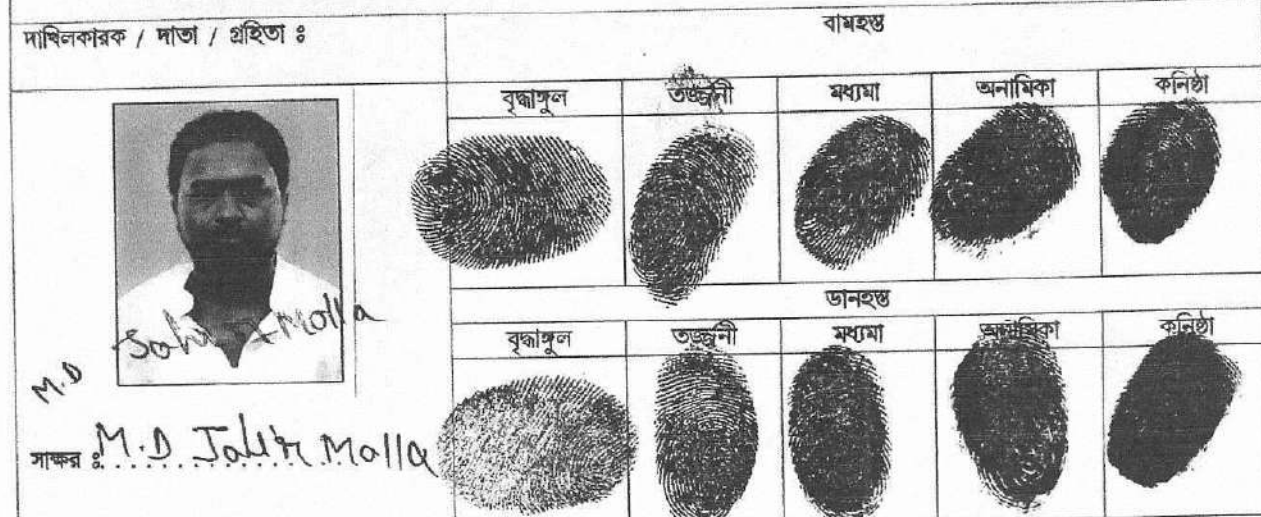 দাখিলকারক / দাতা / গ্রহিতা ঃ
বামহস্ত
বৃদ্ধাঙ্গুল তর্জ্জনী মধ্যমা অনামিকা কনিষ্ঠা
ডানহস্ত
বৃদ্ধাঙ্গুল তর্জ্জনী মধ্যমা অনামিকা কনিষ্ঠা
M.D Molla
সাক্ষর ঃ M.D Jalir Molla